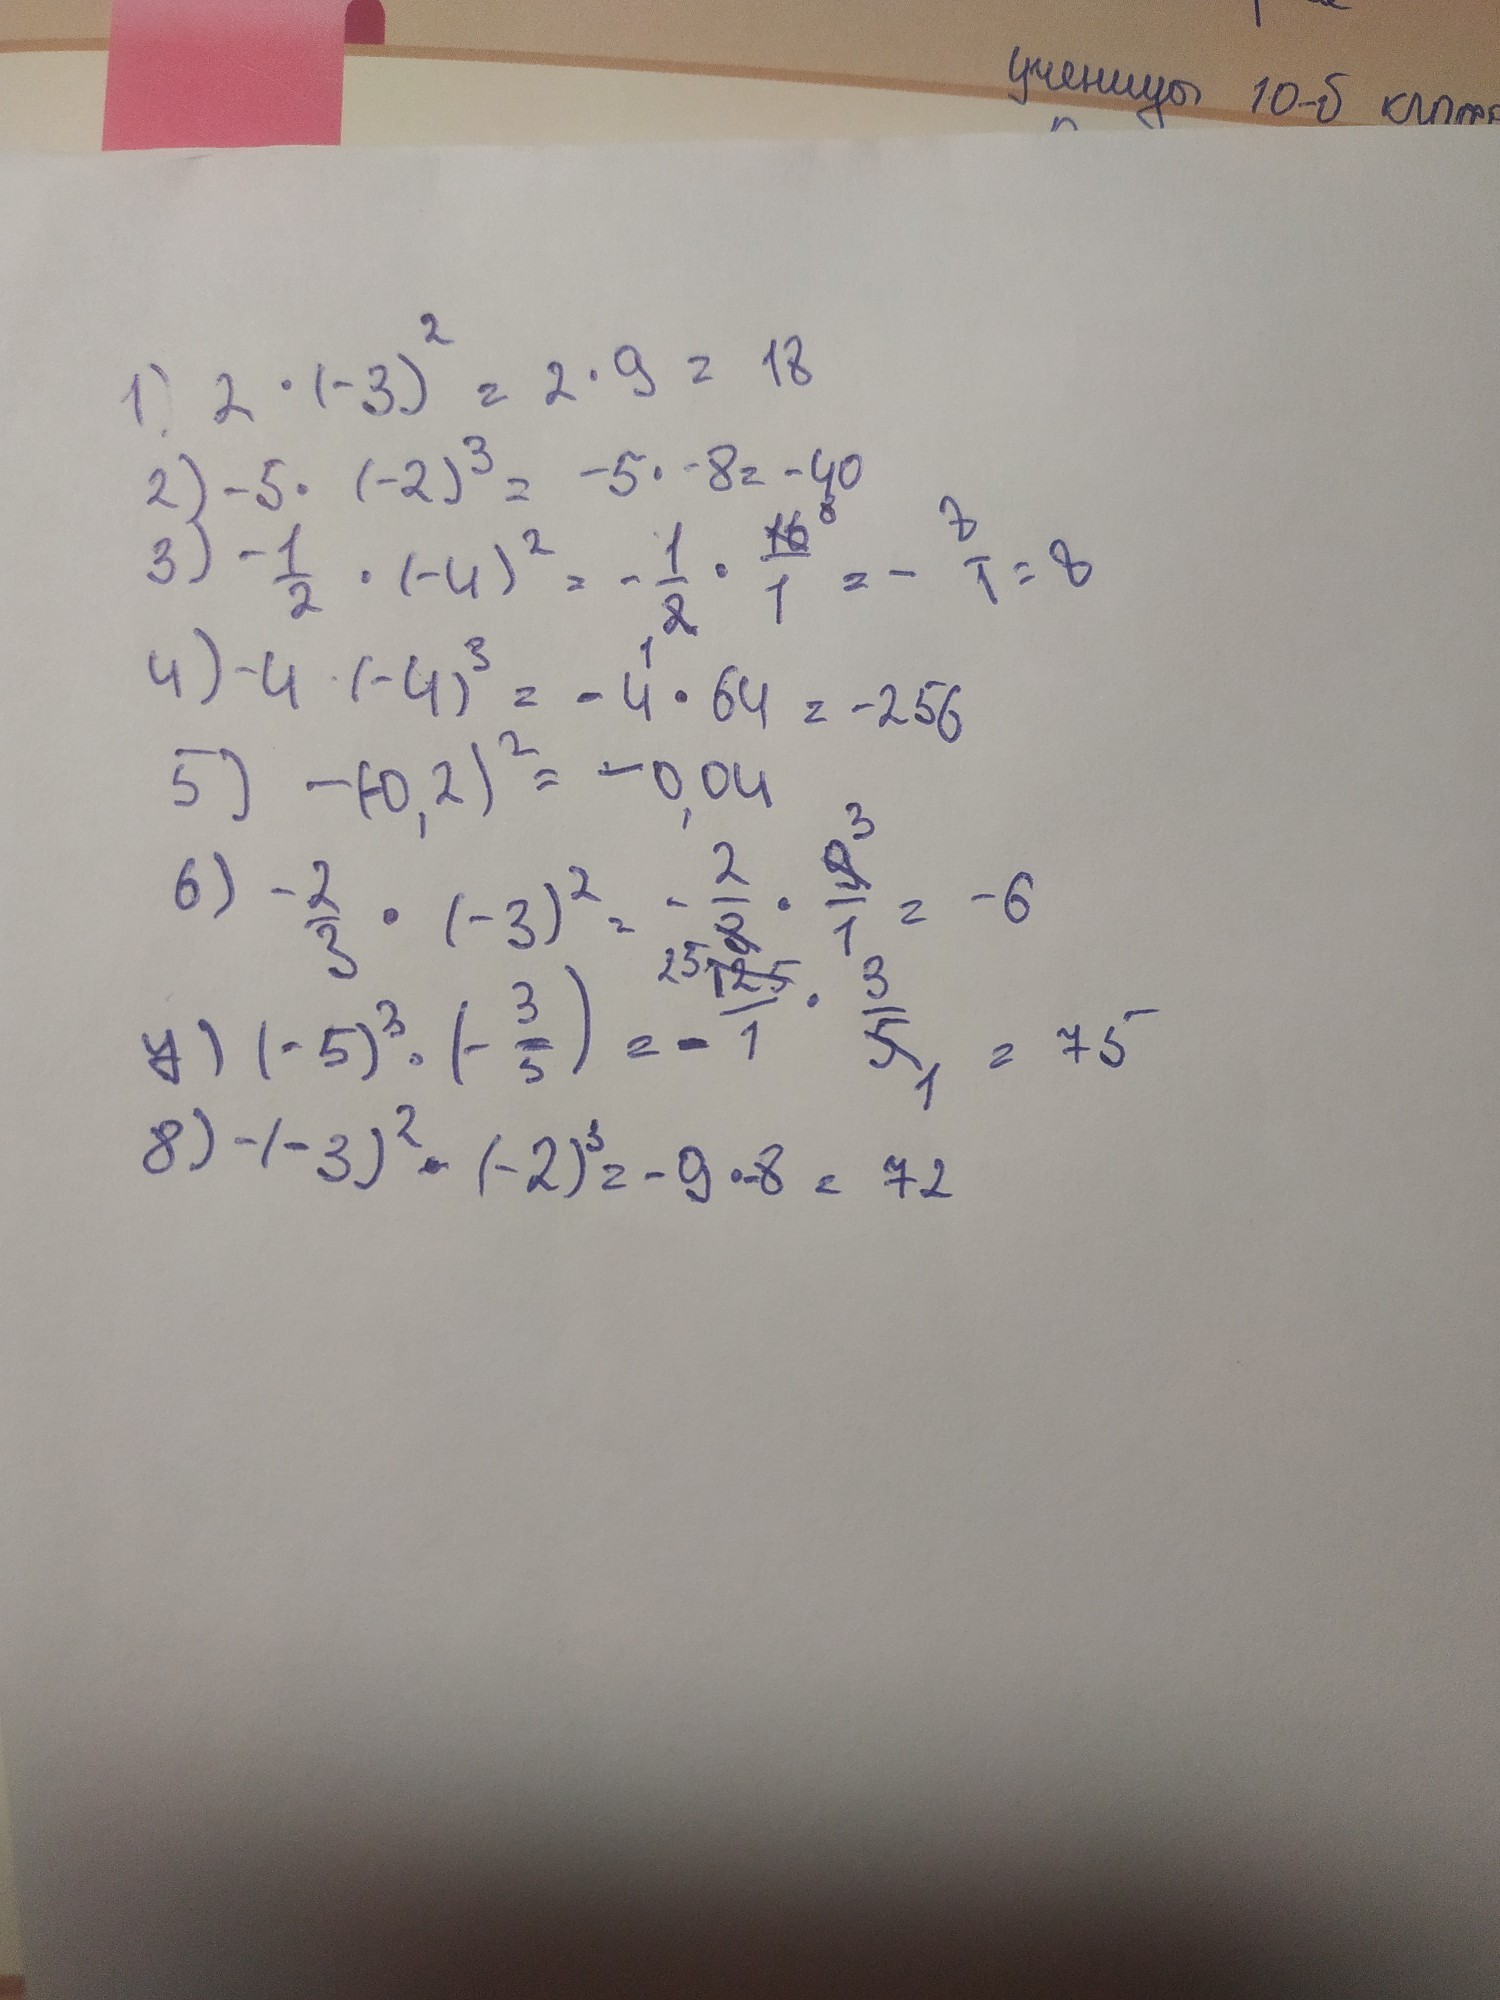 ученицы 10-б
1) 2 · (-3)² = 2 · 9 = 18
2) -5 · (-2)³ = -5 · -8 = -40
3) -1/2 · (-4)² = -1/2 · 16/1 = - 8/1 = 8
4) -4 · (-4)³ = -4 · 64 = -256
5) -(-0,2)² = -0,04
6) -2/3 · (-3)² = -2/3 · 9/1 = -6
7) (-5)³ · (-3/5) = -125/1 · 3/5 = 75
8) -(-3)² · (-2)³ = -9 · -8 = 72